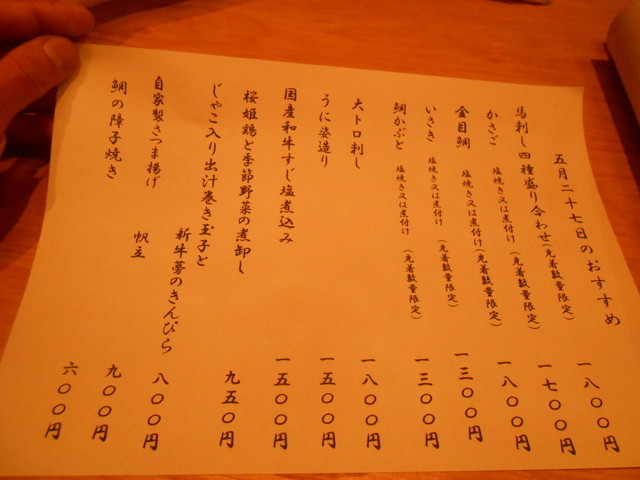 五月二十七日のおすすめ
馬刺し四種盛り合わせ(先着数量限定) 一八〇〇円
かさご 塩焼き又は煮付け(先着数量限定) 一七〇〇円
金目鯛 塩焼き又は煮付け(先着数量限定) 一八〇〇円
いさき 塩焼き又は煮付け(先着数量限定) 一三〇〇円
鯛かぶと 塩焼き又は煮付け(先着数量限定) 一三〇〇円
大トロ刺し 一八〇〇円
うに姿造り 一五〇〇円
国産和牛すじ塩煮込み 一五〇〇円
桜姫鶏と季節野菜の煮卸し 九五〇円
じゃこ入り出汁巻き玉子と
新牛蒡のきんぴら 八〇〇円
自家製さつま揚げ 帆立 九〇〇円
鯛の障子焼き 六〇〇円